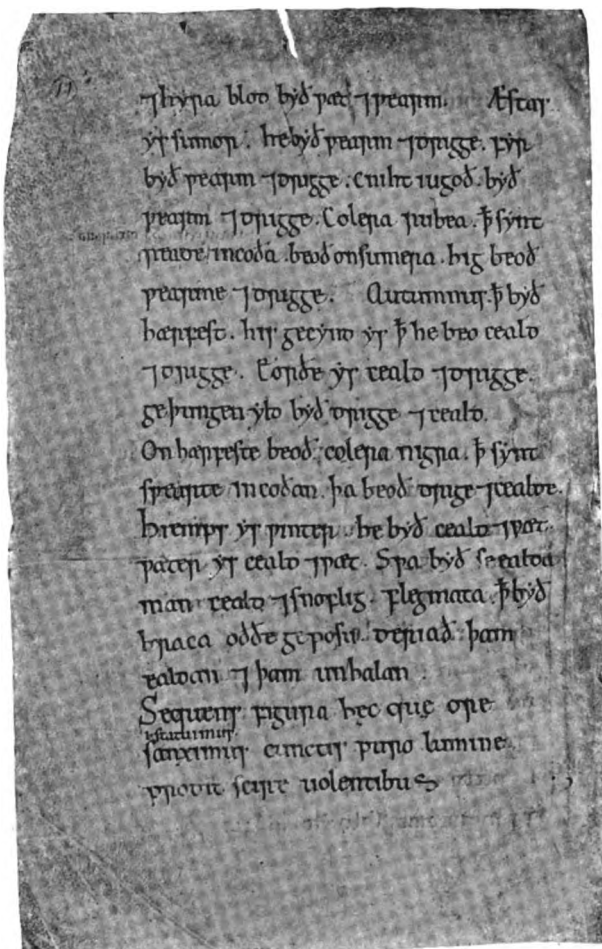 11
⁊ hyra blod byð ƿæt ⁊ ƿearm. Æstas
ys sumor. he byð ƿearm ⁊ drigge. fyr
byð ƿearm ⁊ drigge. cniht iugoð. byð
ƿearm ⁊ drigge. Colera rubea. ꝥ synt
reade incoða. beoð on sumera. hig beoð
ƿearme ⁊ drigge. Autumnus. ꝥ byð
hærfest. his gecynd ys ꝥ he beo ceald
⁊ drigge. Eorðe ys ceald ⁊ drigge.
geþungen yld byð drigge ⁊ ceald.
On hærfeste beoð. colera nigra. ꝥ synt
sƿearte incoðan. þa beoð drige ⁊ cealde.
hiemps ys ƿinter. he byð ceald ⁊ ƿæt.
ƿæter ys ceald ⁊ ƿæt. Sƿa byð se ealda
man ceald ⁊ snoflig. Flegmata. ꝥ byð
hraca oððe geposu. deriað þam
ealdan ⁊ þam unhalan.
Sequens figura hęc quę ore
ł statuimus
sanximus cunctis puro lumine
prodit scire uolentibus